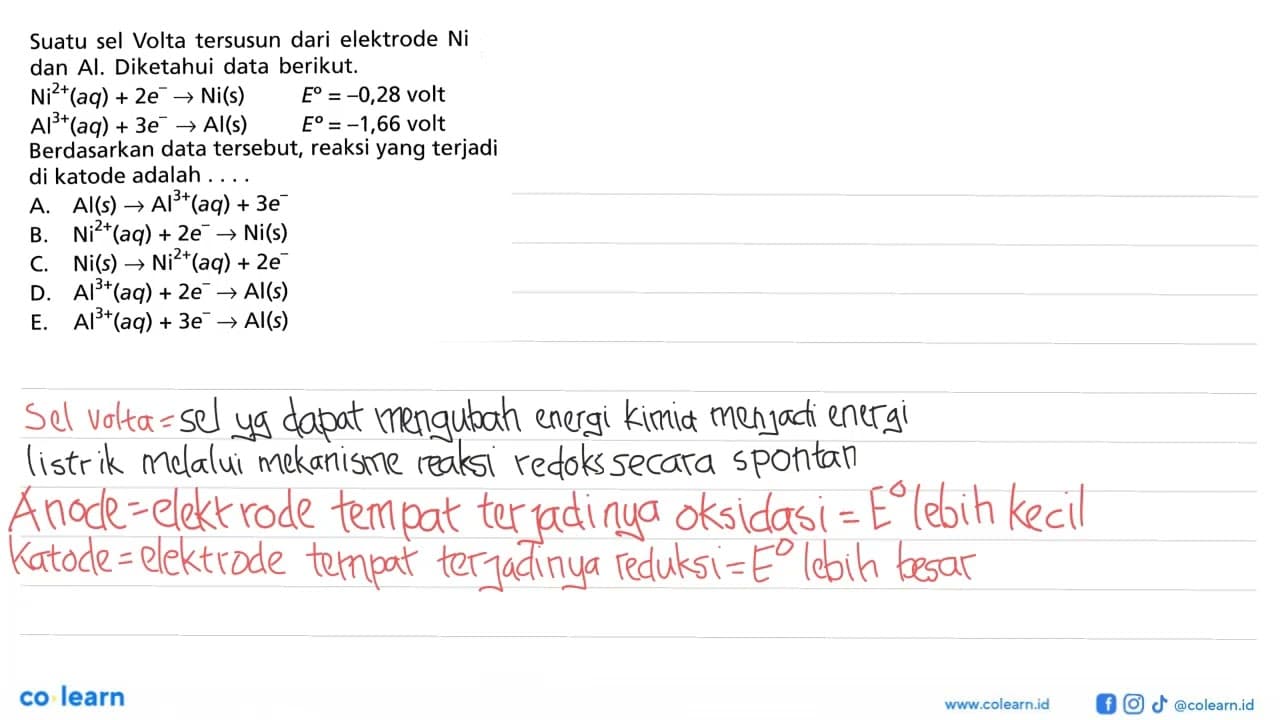 Suatu sel Volta tersusun dari elektrode Ni
dan Al. Diketahui data berikut.
Ni²⁺(aq) + 2e⁻ → Ni(s) E° = –0,28 volt
Al³⁺(aq) + 3e⁻ → Al(s) E° = –1,66 volt
Berdasarkan data tersebut, reaksi yang terjadi
di katode adalah . . . .
A. Al(s) → Al³⁺(aq) + 3e⁻
B. Ni²⁺(aq) + 2e⁻ → Ni(s)
C. Ni(s) → Ni²⁺(aq) + 2e⁻
D. Al³⁺(aq) + 2e⁻ → Al(s)
E. Al³⁺(aq) + 3e⁻ → Al(s)
Sel volta = sel yg dapat mengubah energi kimia menjadi energi
listrik melalui mekanisme reaksi redoks secara spontan
Anode = elektrode tempat terjadinya oksidasi = E° lebih kecil
Katode = elektrode tempat terjadinya reduksi = E° lebih besar
co learn
www.colearn.id
@colearn.id